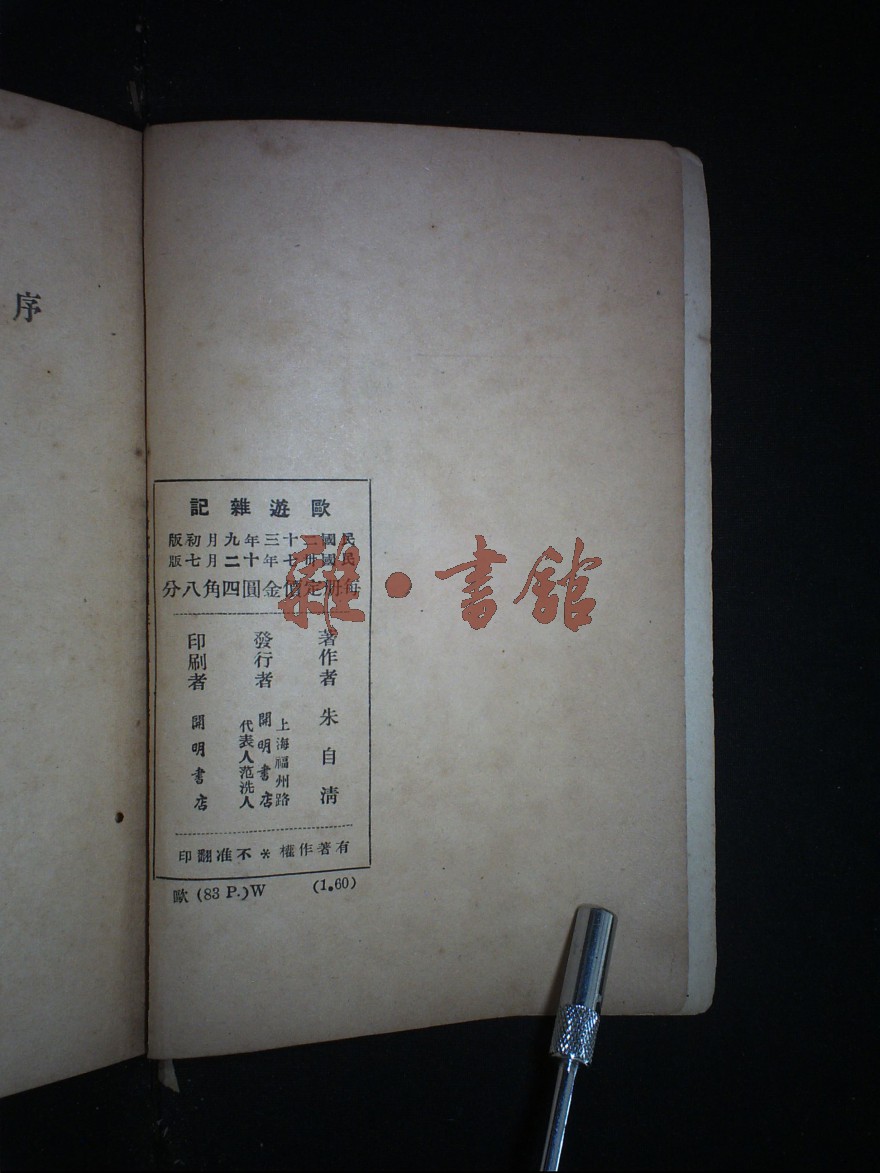 序
歐遊雜記
民國二十三年九月初版
民國卅七年十二月七版
每冊定價金圓四角八分
著作者 朱自清
發行者 上海福州路
開明書店
代表人范洗人
印刷者 開明書店
有著作權*不准翻印
歐 (83 P.)W (1.60)
雜·書館